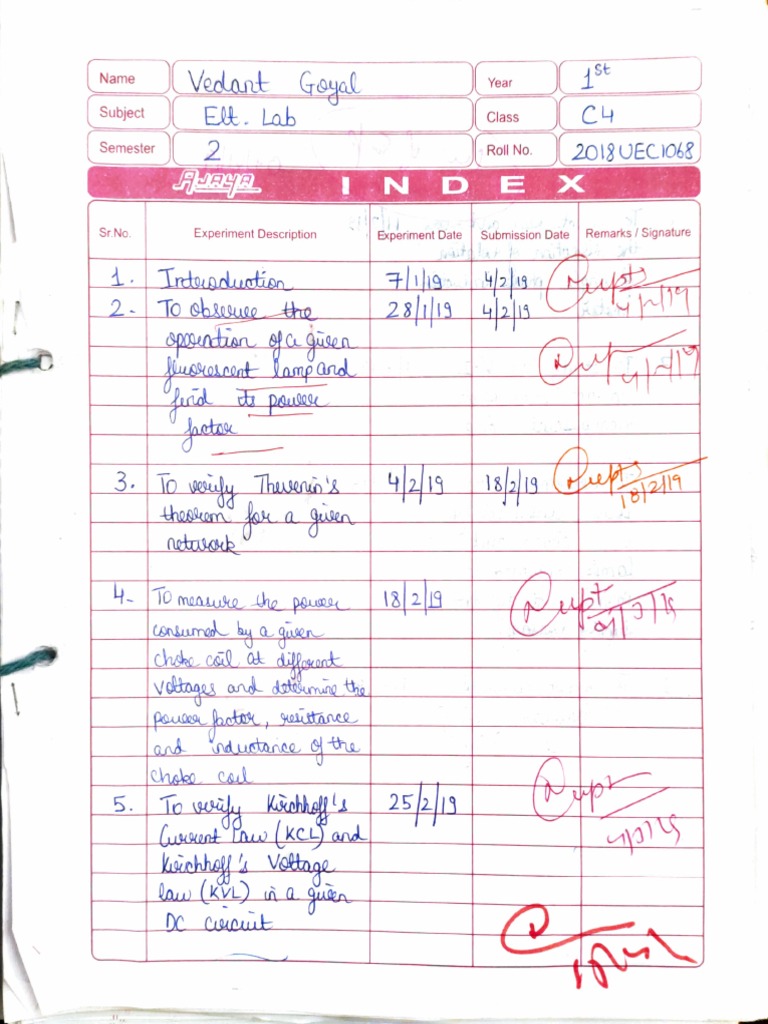 Name Vedant Goyal Year 1st
Subject Elt. Lab Class C4
Semester 2 Roll No. 2018UEC1068
AJAYA INDEX
Sr.No. Experiment Description Experiment Date Submission Date Remarks / Signature
1. Introduction 7/1/19 4/2/19
2. To observe the 28/1/19 4/2/19 4/2/19
operation of a given
fluorescent lamp and 4/2/19
find its power
factor
3. To verify Thevenin's 4/2/19 18/2/19 18/2/19
theorem for a given
network
4. To measure the power 18/2/19
consumed by a given
choke coil at different
voltages and determine the
power factor, resittance
and inductance of the
choke coil
5. To verify Kirchhoff's 25/2/19
Current law (KCL) and
Kirchhoff's Voltage
law (KVL) in a given
DC circuit